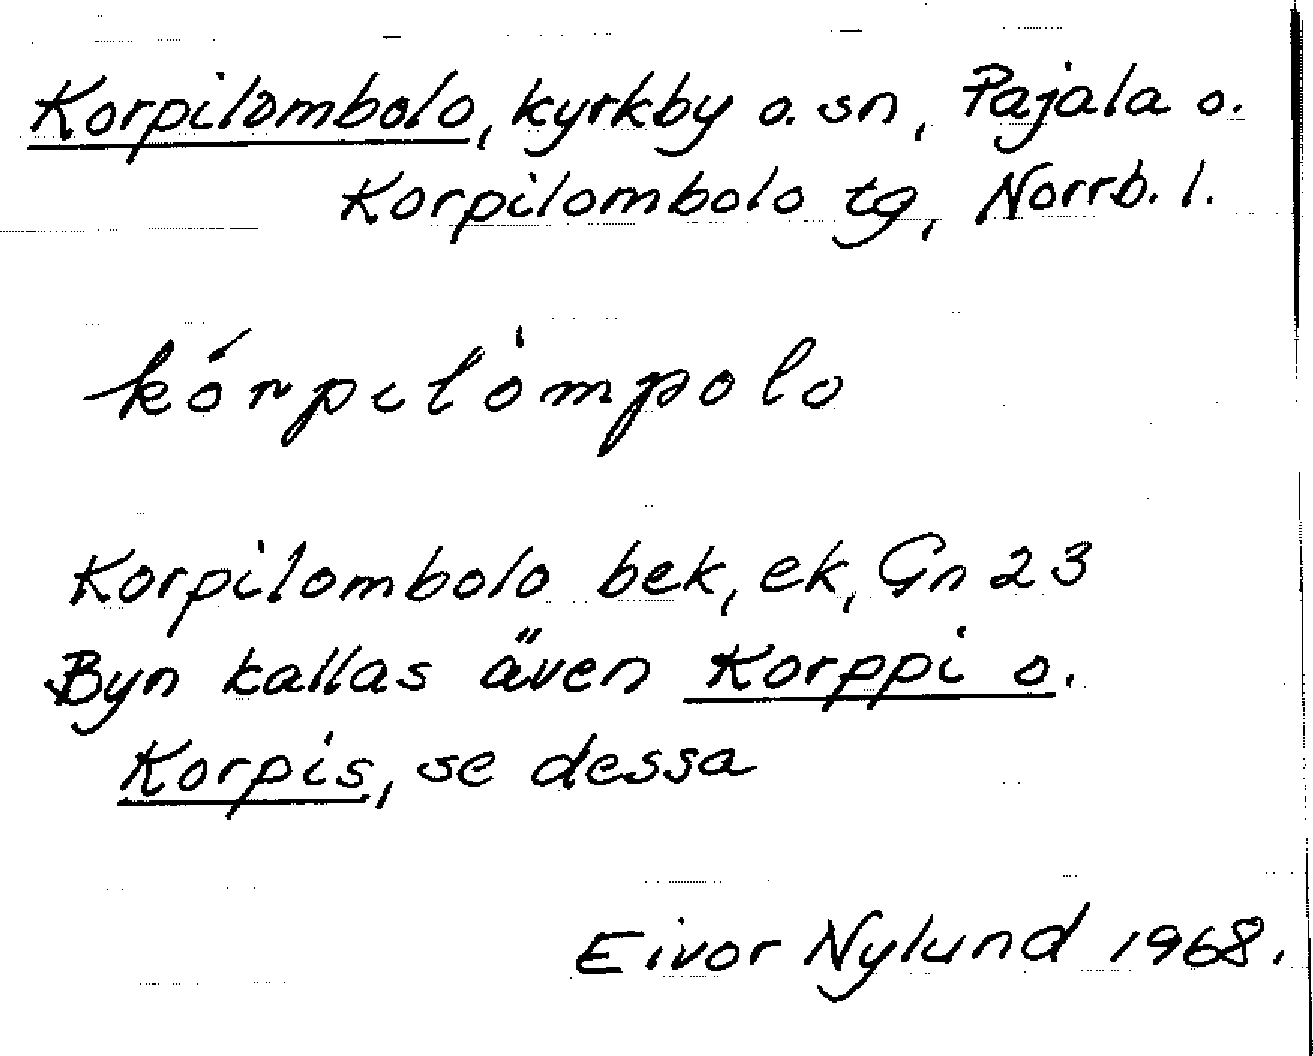 Korpilombolo, kyrkby o. sn, Pajala o.
Korpilombolo tg, Norrb. l.
kórpilòmpolo
Korpilombolo bek, ek, Gn 23
Byn kallas även Korppi o.
Korpis, se dessa
Eivor Nylund 1968.